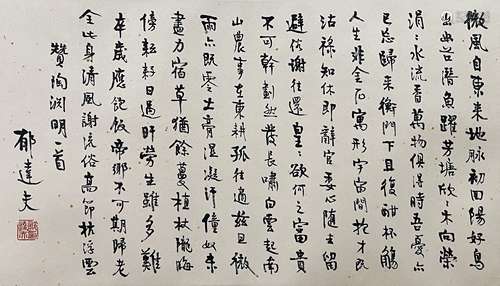 微風自東來地脉初回陽好鳥
出幽谷潛魚躍芳塘欣欣木向榮
涓涓水流香萬物俱得時吾憂亦
已忘歸來衡門下且復酣杯觴
人生非金石寓形宇宙間才
沽祿知休即辭官委心隨去留
避俗謝往還皇皇欲何之富貴
不可幹劃然發長嘯白雲起南
山農事在東耕孤往適茲且微
雨亦既零土膏湿凝汗僮奴未
盡力宿草猶餘蔓植杖隴
傍耘耔日過旰勞生雖多難
卒歲應飽飯帝鄉不可期歸老
全此身清風謝流俗高節扶浮雲
贊陶淵明一首
郁達夫